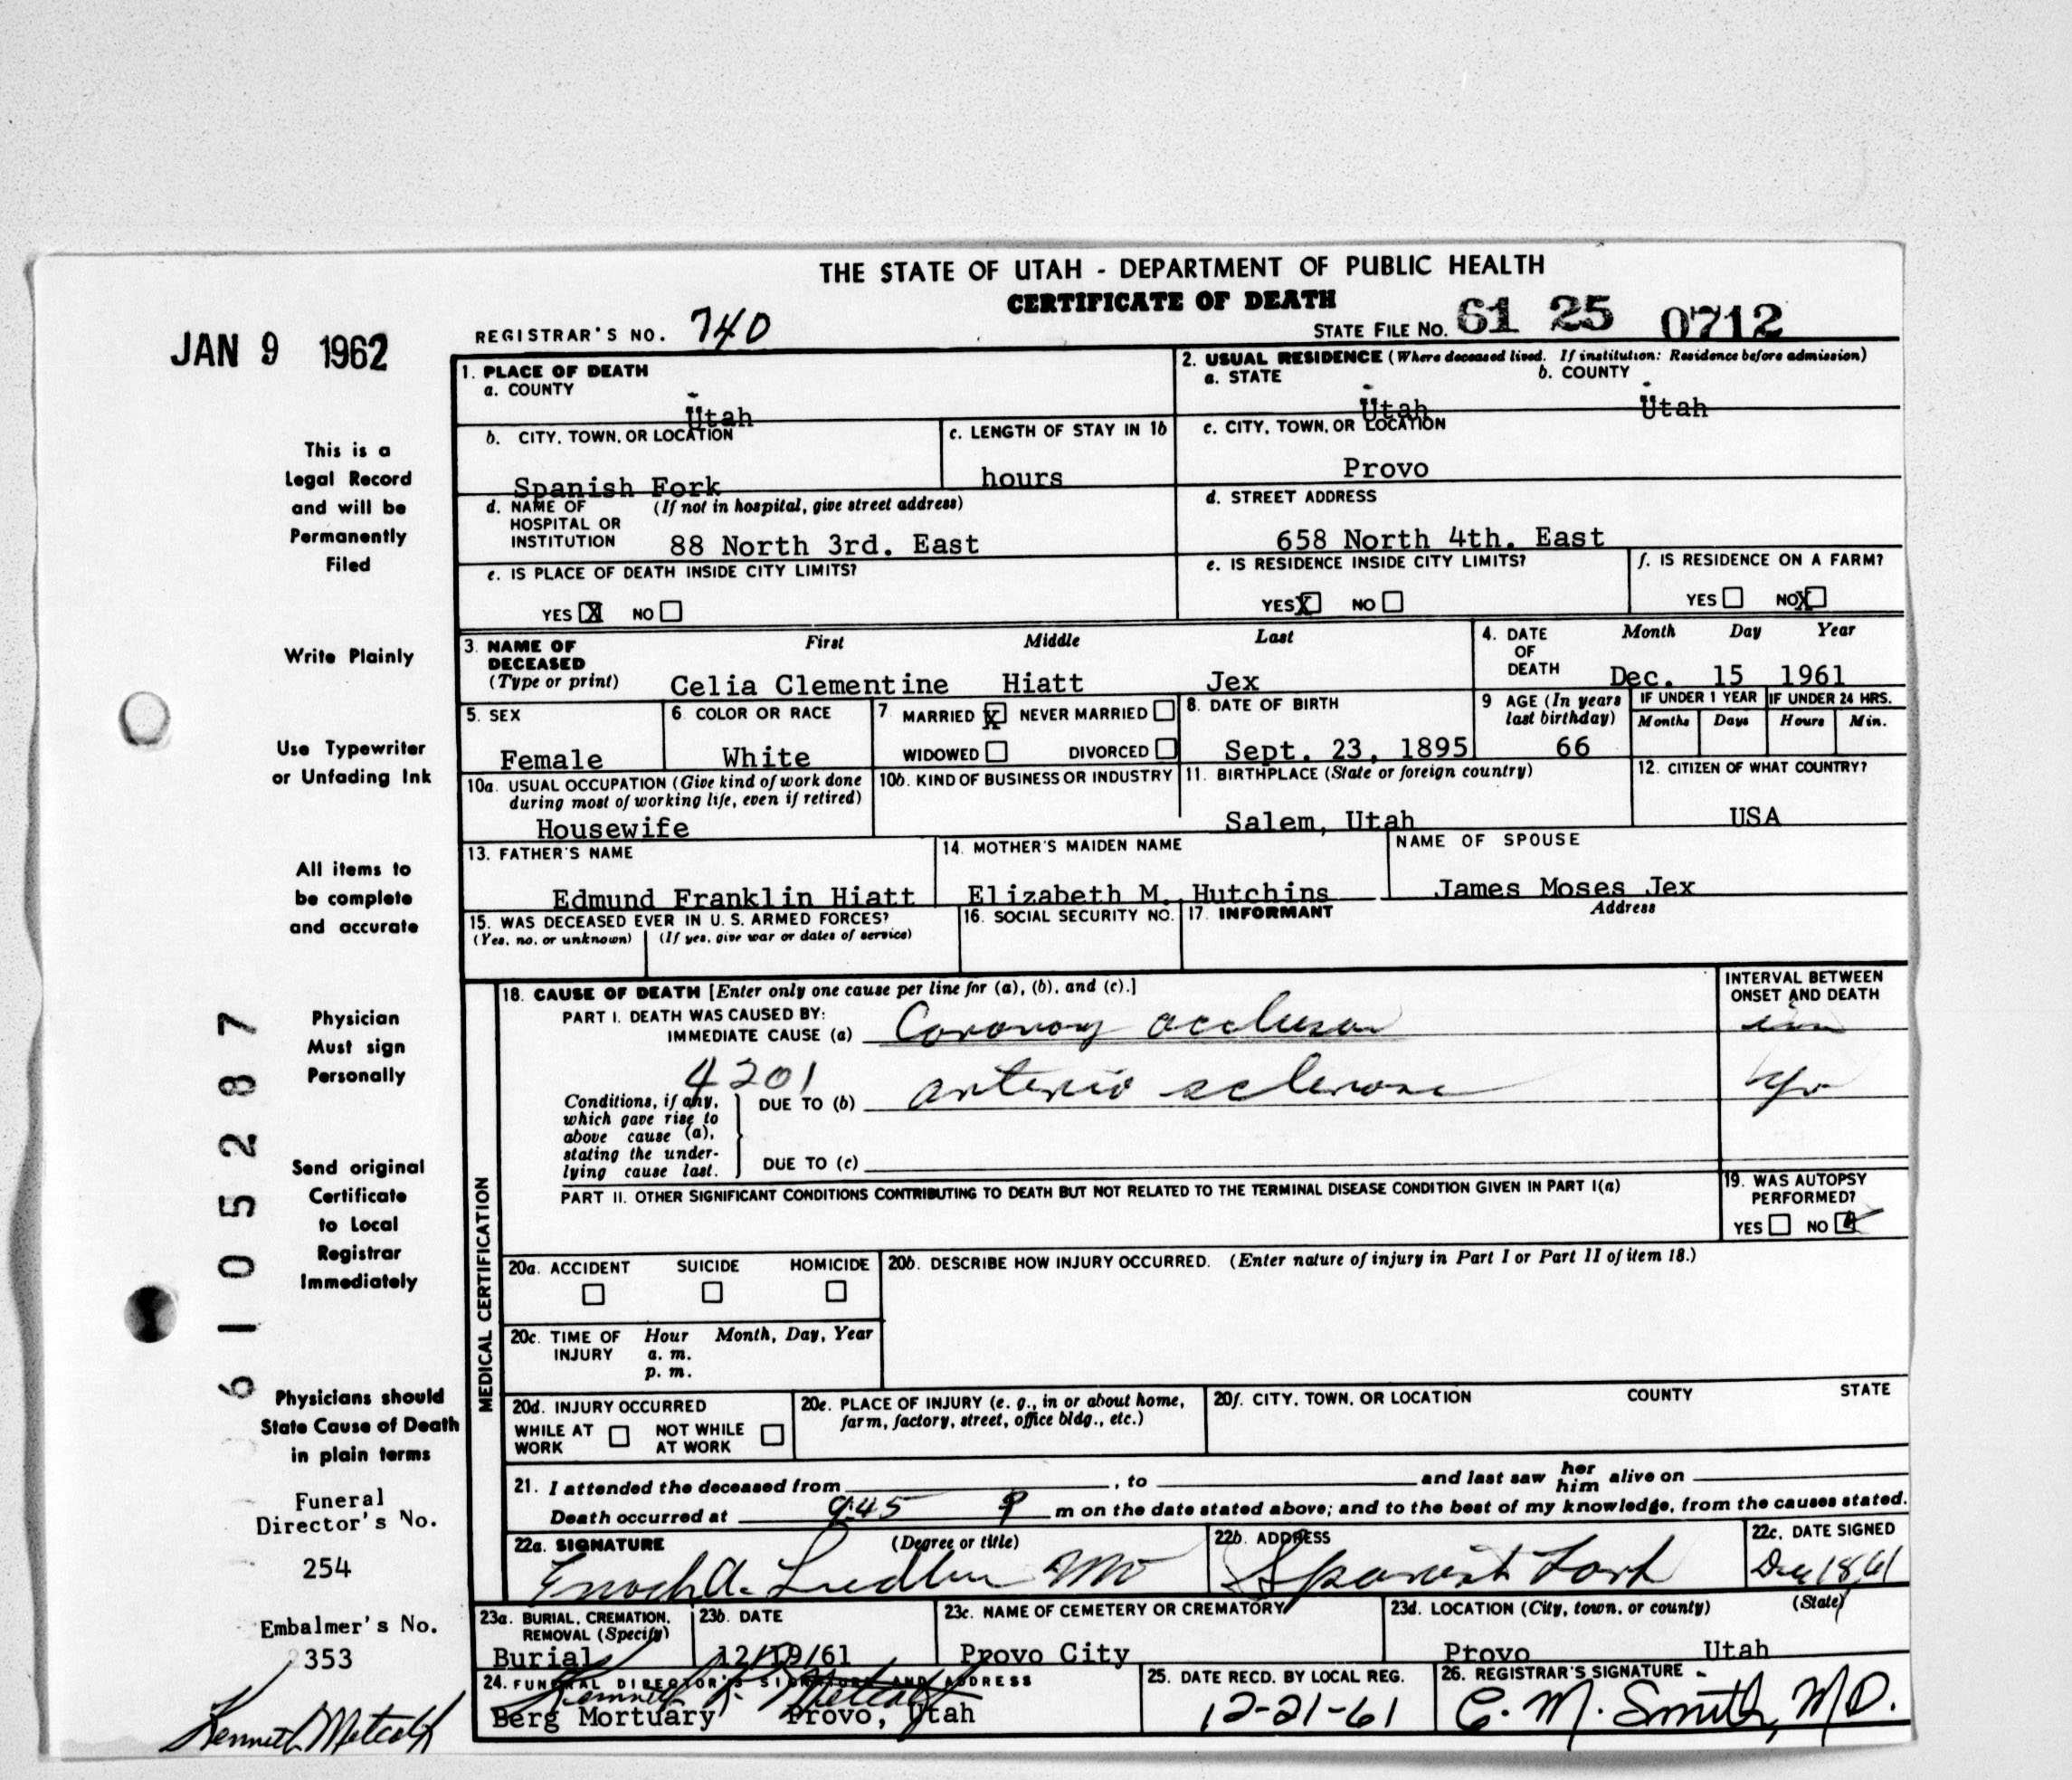 THE STATE OF UTAH - DEPARTMENT OF PUBLIC HEALTH
CERTIFICATE OF DEATH
JAN 9 1962
REGISTRAR'S NO. 740
STATE FILE NO. 61 25 0712
1. PLACE OF DEATH
a. COUNTY
Utah
2. USUAL RESIDENCE (Where deceased lived. If institution: Residence before admission)
a. STATE b. COUNTY
Utah Utah
b. CITY, TOWN, OR LOCATION
Spanish Fork
c. LENGTH OF STAY IN 1b
hours
c. CITY, TOWN, OR LOCATION
Provo
d. NAME OF HOSPITAL OR INSTITUTION (If not in hospital, give street address)
88 North 3rd. East
d. STREET ADDRESS
658 North 4th. East
e. IS PLACE OF DEATH INSIDE CITY LIMITS?
YES X NO
e. IS RESIDENCE INSIDE CITY LIMITS?
YES X NO
f. IS RESIDENCE ON A FARM?
YES NO X
3. NAME OF DECEASED (Type or print)
First Middle Last
Celia Clementine Hiatt Jex
4. DATE OF DEATH
Month Day Year
Dec. 15 1961
5. SEX
Female
6. COLOR OR RACE
White
7. MARRIED X NEVER MARRIED
WIDOWED DIVORCED
8. DATE OF BIRTH
Sept. 23, 1895
9 AGE (In years last birthday)
66
IF UNDER 1 YEAR
Months Days
IF UNDER 24 HRS.
Hours Min.
10a. USUAL OCCUPATION (Give kind of work done during most of working life, even if retired)
Housewife
10b. KIND OF BUSINESS OR INDUSTRY
11. BIRTHPLACE (State or foreign country)
Salem, Utah
12. CITIZEN OF WHAT COUNTRY?
USA
13. FATHER'S NAME
Edmund Franklin Hiatt
14. MOTHER'S MAIDEN NAME
Elizabeth M. Hutchins
NAME OF SPOUSE
James Moses Jex
15. WAS DECEASED EVER IN U.S. ARMED FORCES?
(Yes, no, or unknown) (If yes, give war or dates of service)
16. SOCIAL SECURITY NO.
17. INFORMANT Address
MEDICAL CERTIFICATION
18. CAUSE OF DEATH [Enter only one cause per line for (a), (b), and (c).]
PART I. DEATH WAS CAUSED BY:
IMMEDIATE CAUSE (a) Coronary occlusion
INTERVAL BETWEEN ONSET AND DEATH
4201
Conditions, if any, which gave rise to above cause (a), stating the underlying cause last.
DUE TO (b) arterio sclerosis
DUE TO (c)
PART II. OTHER SIGNIFICANT CONDITIONS CONTRIBUTING TO DEATH BUT NOT RELATED TO THE TERMINAL DISEASE CONDITION GIVEN IN PART I(a)
19. WAS AUTOPSY PERFORMED?
YES NO
20a. ACCIDENT SUICIDE HOMICIDE
20b. DESCRIBE HOW INJURY OCCURRED. (Enter nature of injury in Part I or Part II of item 18.)
20c. TIME OF INJURY Hour Month, Day, Year
a. m.
p. m.
20d. INJURY OCCURRED
WHILE AT WORK NOT WHILE AT WORK
20e. PLACE OF INJURY (e. g., in or about home, farm, factory, street, office bldg., etc.)
20f. CITY, TOWN, OR LOCATION COUNTY STATE
21. I attended the deceased from , to and last saw her him alive on
Death occurred at 9:45 P m on the date stated above; and to the best of my knowledge, from the causes stated.
22a. SIGNATURE (Degree or title)
Enoch A. Ludlow MD
22b. ADDRESS
Spanish Fork
22c. DATE SIGNED
Dec 18, 61
23a. BURIAL, CREMATION, REMOVAL (Specify)
Burial
23b. DATE
12/19/61
23c. NAME OF CEMETERY OR CREMATORY
Provo City
23d. LOCATION (City, town, or county) (State)
Provo Utah
24. FUNERAL DIRECTOR'S SIGNATURE AND ADDRESS
Kenneth R. Metcalf
Berg Mortuary Provo, Utah
25. DATE RECD. BY LOCAL REG.
12-21-61
26. REGISTRAR'S SIGNATURE
C. M. Smith, MD.
This is a
Legal Record
and will be
Permanently
Filed
Write Plainly
Use Typewriter
or Unfading Ink
All items to
be complete
and accurate
Physician
Must sign
Personally
Send original
Certificate
to Local
Registrar
Immediately
Physicians should
State Cause of Death
in plain terms
Funeral
Director's No.
254
Embalmer's No.
353
Kenneth Metcalf
6105287